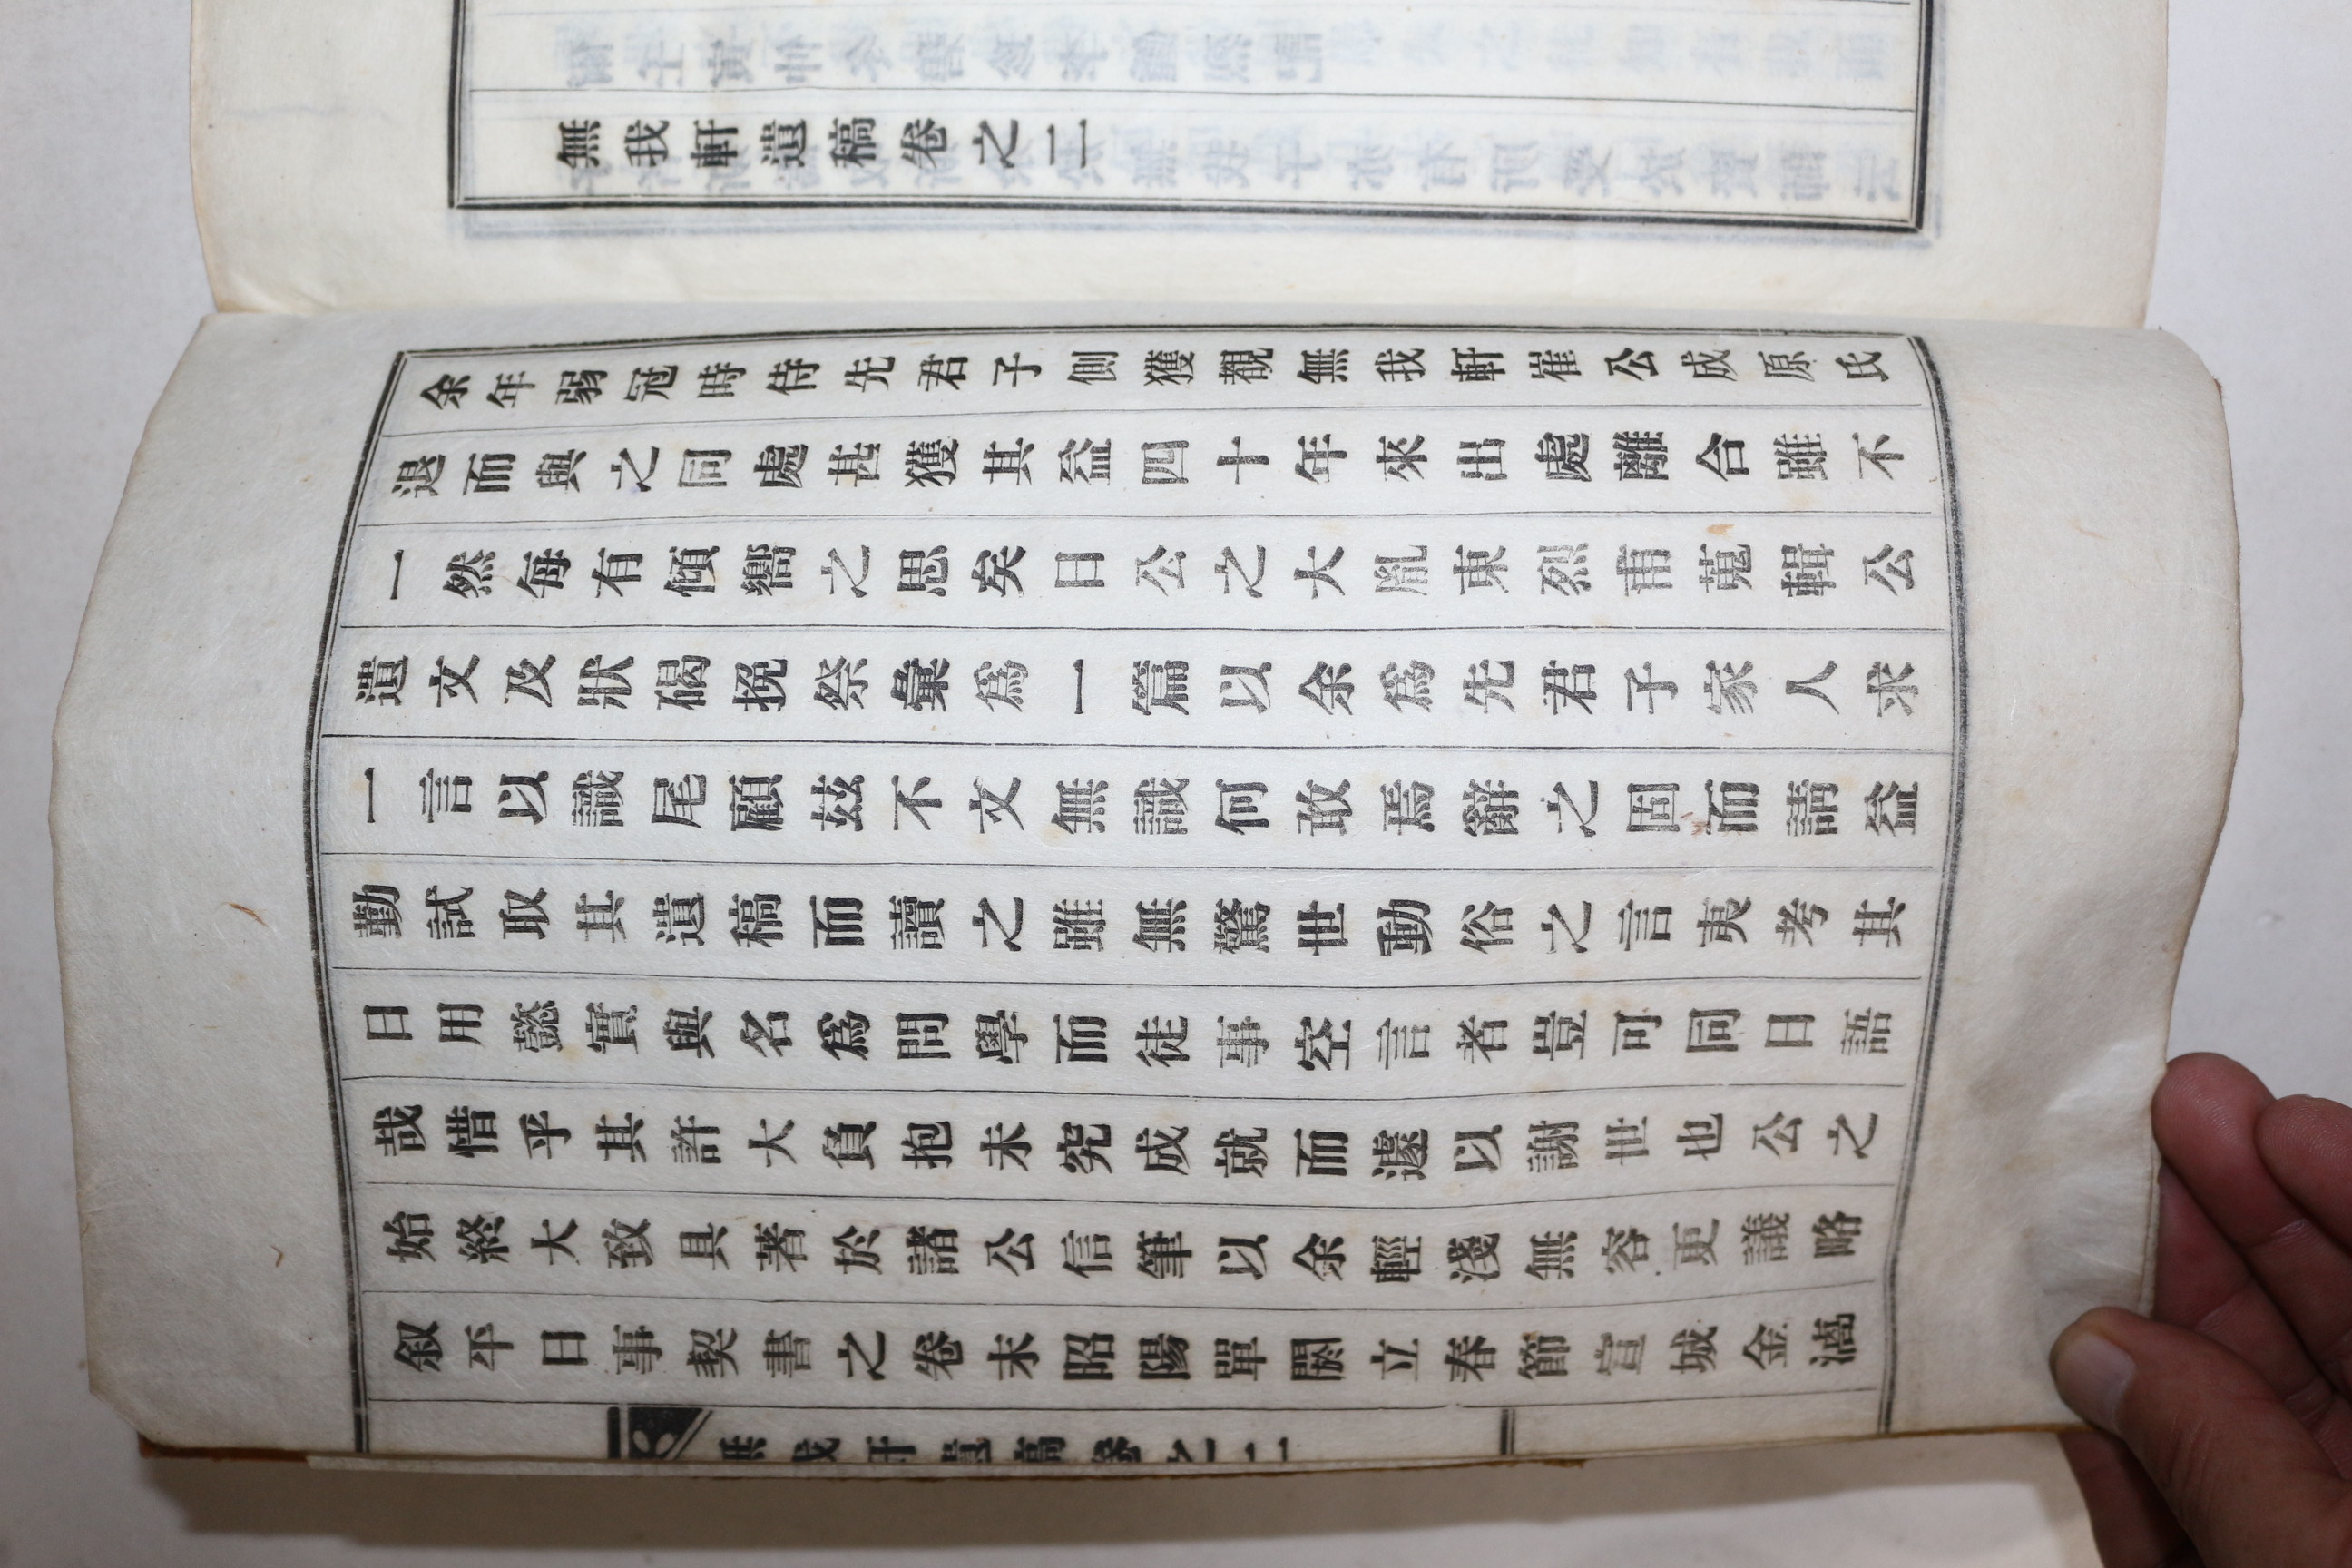 無我軒遺稿卷之二
余年弱冠時侍先君子側獲覩無我軒崔公成原氏
退而與之同處甚獲其益四十年來出處離合雖不
一然每有傾嚮之思矣日公之大胤東烈甫蒐輯公
遺文及狀碣挽祭彙爲一篇以余爲先君子家人求
一言以識尾顧玆不文無識何敢焉辭之固而請益
勤試取其遺稿而讀之雖無驚世動俗之言夷考其
日用懿實與名爲問學而徒事空言者豈可同日語
哉惜乎其許大負抱未究成就而遽以謝世也公之
始終大致具著於諸公信筆以余輕淺無容更議略
叙平日事契書之卷末昭陽單閼立春節宣城金潏
無我軒遺稿卷之二